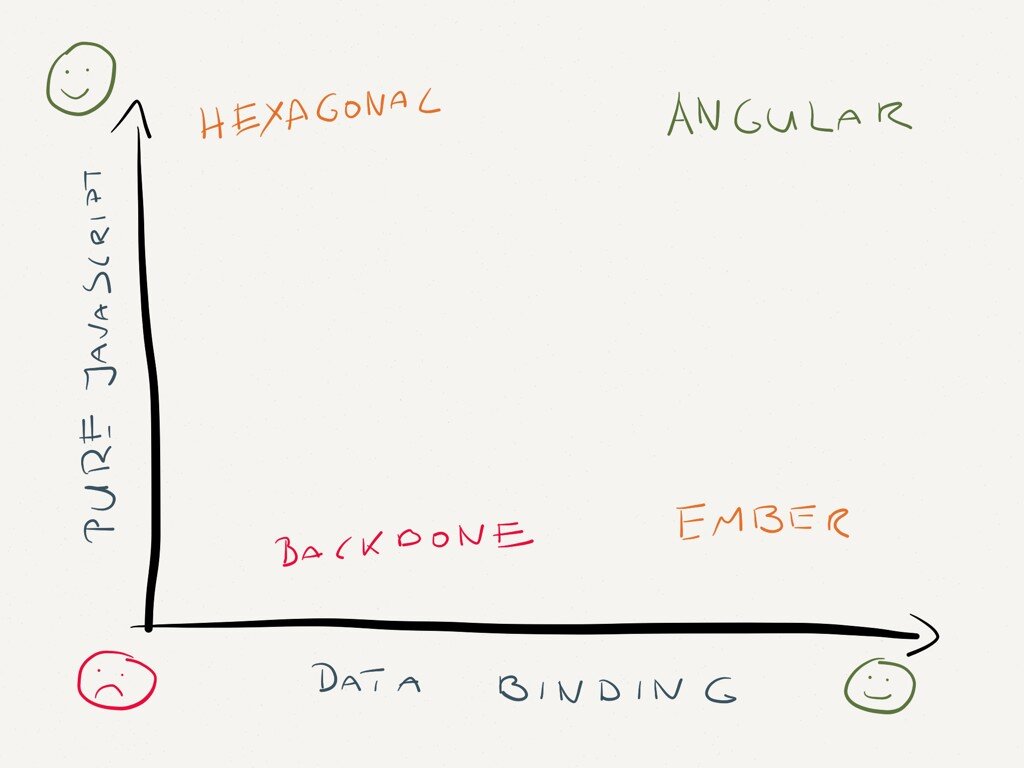 HEXAGONAL
ANGULAR
PURE JAVASCRIPT
BACKBONE
EMBER
DATA BINDING